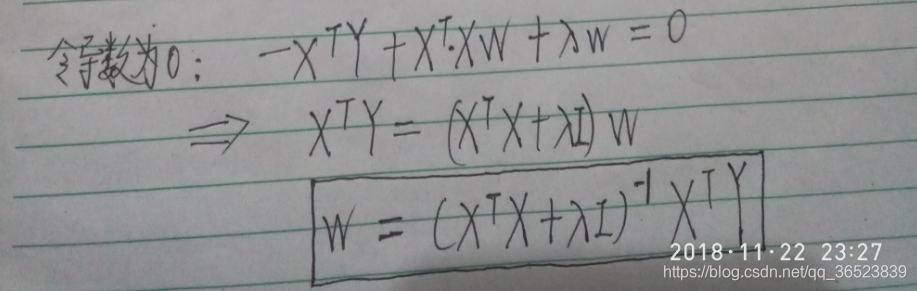 令导数为0: -XᵀY + Xᵀ·XW + λW = 0
⇒ XᵀY = (XᵀX + λI) W
W = (XᵀX + λI)⁻¹ XᵀY
2018·11·22 23:27
https://blog.csdn.net/qq_36523839